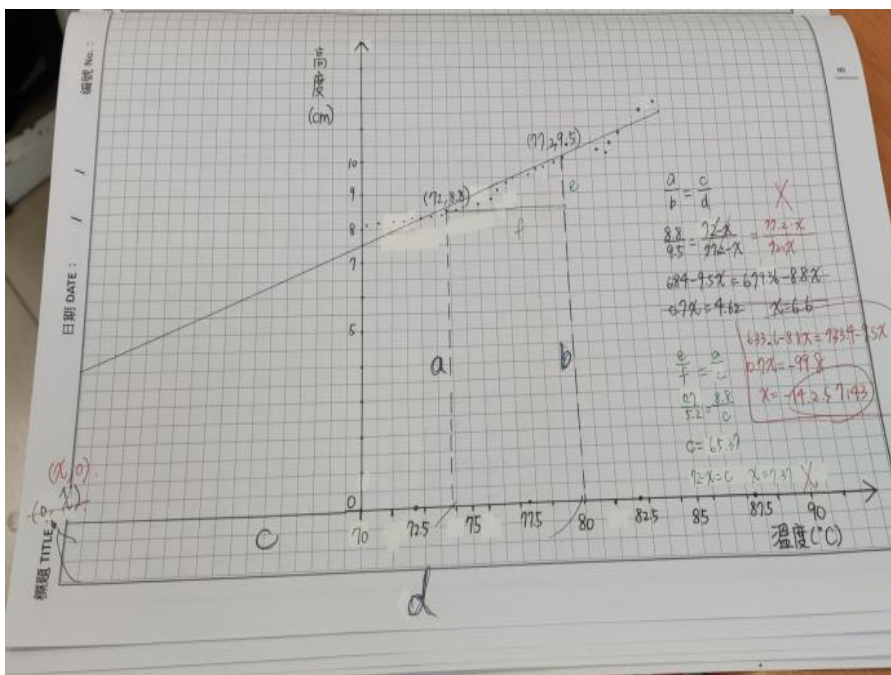 編號 No. :
日期 DATE : / /
標題 TITLE :
8
高度
(cm)
10
9
8
7
5
0
(72,8.8)
(77.2,9.5)
e
f
a
b
c
d
(x,0)
70
72.5
75
77.5
80
82.5
85
87.5
90
溫度(°C)
a/b = c/d X
8.8/9.5 = 72-x/77.2-x = 77.2-x/72-x
684-9.5x=679.36-8.8x
0.7x=4.62 x=6.6
633.6-8.8x=733.4-9.5x
0.7x=-99.8
x=-142.57143
e/f = a/c
0.7/5.2=8.8/c
c=65.37
72-x=c x=7.37 X